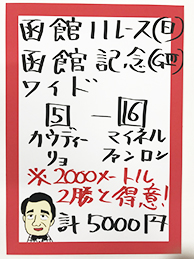 函館11レース(日)
函館記念(GⅢ)
ワイド
5 — 16
カウディーリョ マイネルファンロン
※2000メートル
2勝と得意!
計5000円